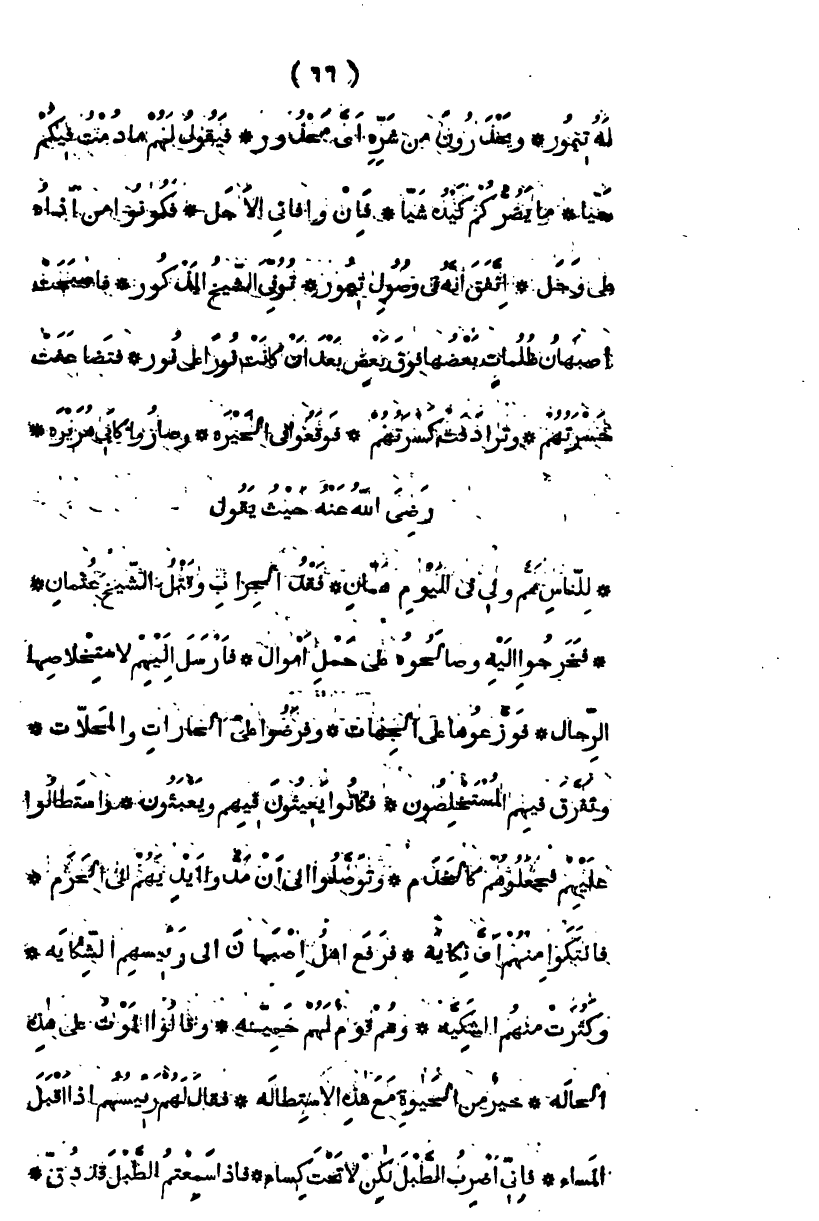 ( ٦٦ )
لَهُ تِيْمُور * ويَحْذَرُونَ مِن شَرِّهِ اَىَّ مَحْذُور * فَيَقُولُ لَهُمْ مَادُمْتُ فِيكُمْ
حَيّا * مَا يَضُرُّكُمْ كَيْدُهُ شَيّا * فَاِنْ وافانِى الاَجَل * فَكُونُوا مِن اَذَاهُ
على وَجَل * اِتَّفَقَ اَنَّهُ فى وُصُولِ تِيمُور * تُوُفِّىَ الشَّيخُ المَذْكُور * فاصبَحَتْ
اصبَهَانُ ظُلُماتٍ بَعْضُها فَوقَ بَعْضٍ بَعْدَ اَنْ كانَتْ نُورًا على نُور * فتَضاعَفَتْ
حَسْرَتُهُم * وتَرادَفَتْ كَسْرَتُهُمْ * فَوَقَعُوا فى الحَيْرَه * وصارُوا كاَبِى هُرَيْرَه *
رَضِىَ اللّٰهُ عَنْهُ حَيْثُ يَقُولُ
* لِلنّاسِ هَمٌّ ولِى فى اليَوْمِ هَمّانِ * فَقْدُ الجِرابِ وقَتْلُ الشَّيخِ عُثمانِ *
* فَخَرَجُوا اِلَيْهِ وصالَحُوهُ على حَمْلِ اَمْوال * فاَرْسَلَ اِلَيْهِمْ لاسْتِخْلاصِها
الرِّجال * فَوَزَّعُوها على الجِهات * وفَرَضُوا على الحارات والمَحَلاّت *
وتَفَرَّقَ فيهِم المُسْتَخْلِصُون * فكانُوا يَعِيثُونَ فيهِم ويَعبَثُون * واستَطالُوا
عَلَيْهِمْ فجَعَلُوهُم كالخَدَم * وتَوَصَّلُوا الى اَنْ مَدُّوا اَيْدِيَهُمْ الى الحَرَم *
فانتَكَوْا مِنْهُمْ اَىَّ نِكايَه * فرَفَعَ اهلُ اِصْبَهانَ الى رَئِيسِهِم الشِّكايَه *
وكَثُرَتْ مِنهُم الشَّكِيَّه * وهُم قَوم لَهُمْ حَمِيَّه * وقالُوا المَوْتُ على هٰذِهِ
الحالَه * خيرٌ مِن الحَيٰوةِ مَعَ هٰذِهِ الاسْتِطالَه * فقالَ لَهُم رَئِيسُهُم اذا اَقْبَلَ
المَساء * فاِنِّى اَضْرِبُ الطَّبْلَ لٰكِنْ لا تَحْتَ كِساء * فاذا سَمِعْتُم الطَّبْلَ قَدْ دُقّ *